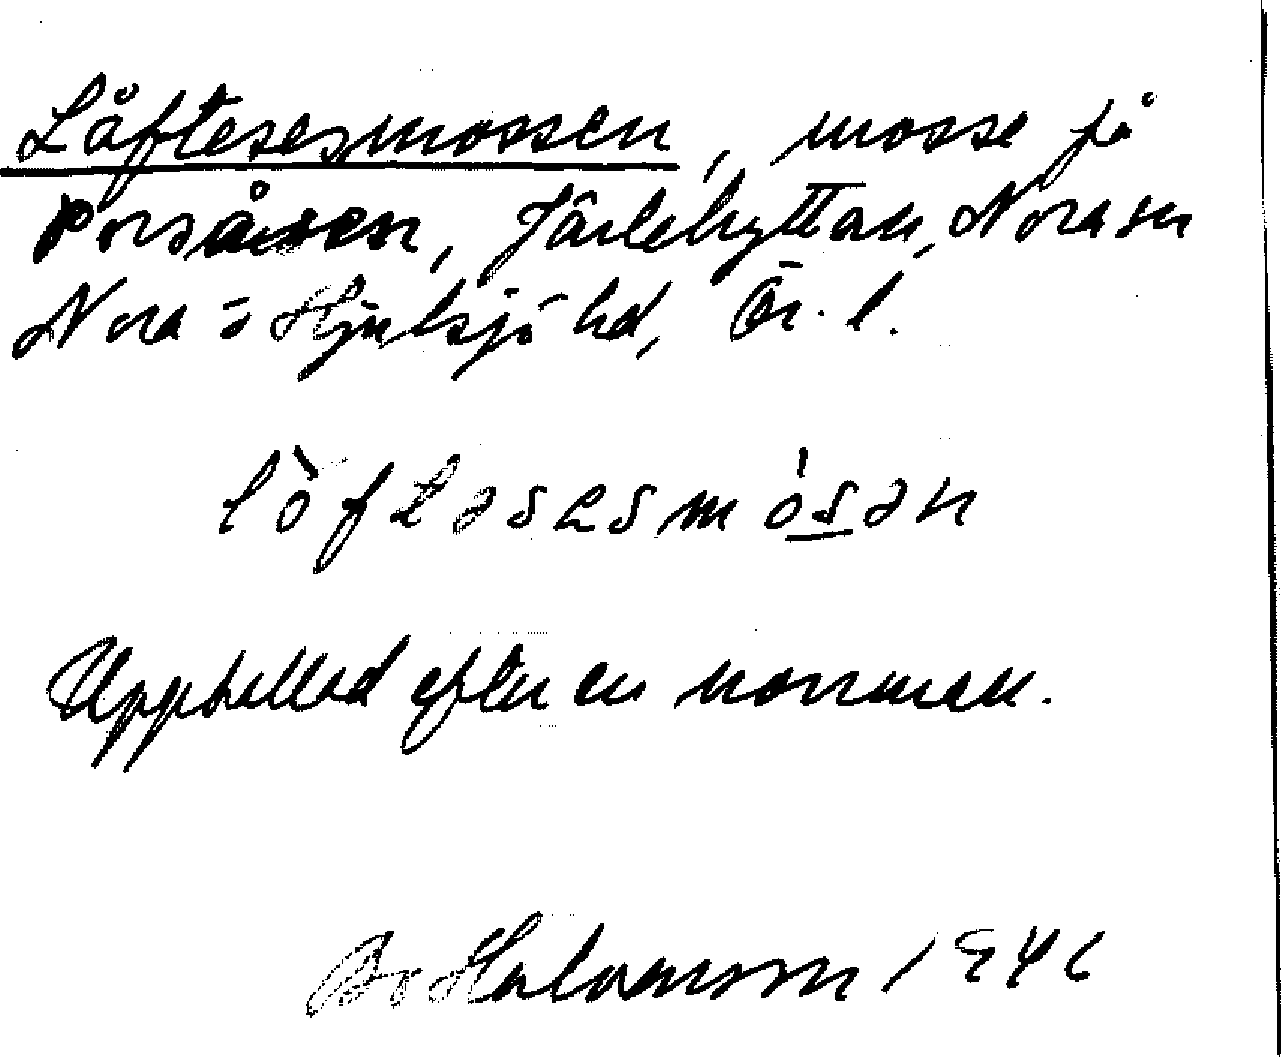 Låftesesmossen, mosse på
Porsåsen, Järlehyttan, Nora sn
Nora o Hjulsjö hd, Ör. l.
lòftəsesmósən
Uppkallad efter en norrman.
Bo Halvarsson 1946